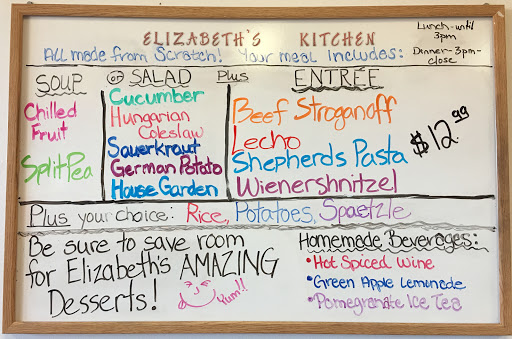 ELIZABETH'S KITCHEN
Lunch-until
3pm
Dinner-3pm-
close
All made from Scratch! Your meal includes:
SOUP or SALAD Plus ENTRÉE
Chilled
Fruit
Split Pea
Cucumber
Hungarian
Coleslaw
Sauerkraut
German Potato
House Garden
Beef Stroganoff
Lecho
Shepherds Pasta
Wienershnitzel
$12.99
Plus your choice: Rice, Potatoes, Spaetzle
Be sure to save room
for Elizabeth's AMAZING
Desserts!
Yum!!
Homemade Beverages:
•Hot Spiced Wine
•Green Apple Lemonade
•Pomegranate Ice Tea